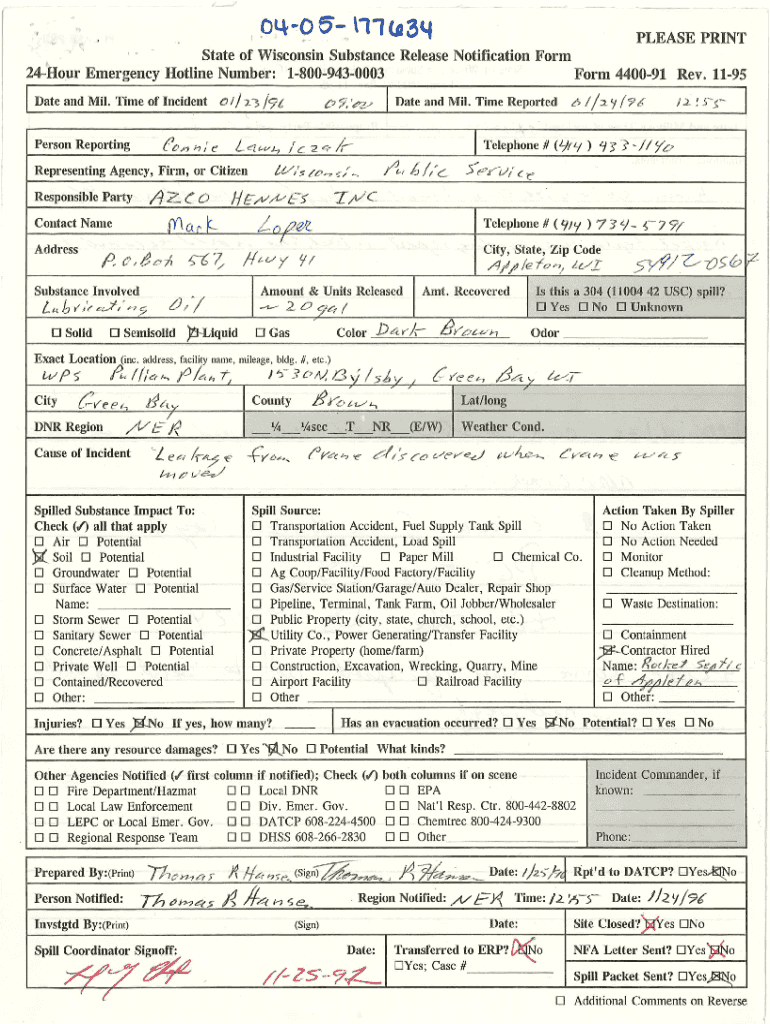 04-05-177634
PLEASE PRINT
State of Wisconsin Substance Release Notification Form
24-Hour Emergency Hotline Number: 1-800-943-0003 Form 4400-91 Rev. 11-95
Date and Mil. Time of Incident 01/23/96 09:00 Date and Mil. Time Reported 01/24/96 12:55
Person Reporting Connie Lawniczak Telephone # (414) 433-1140
Representing Agency, Firm, or Citizen Wisconsin Public Service
Responsible Party AZCO HENNES INC
Contact Name Mark Loper Telephone # (414) 734-5791
Address P.O.Box 567, Hwy 41 City, State, Zip Code
Appleton, WI 54912-0567
Substance Involved Amount & Units Released Amt. Recovered Is this a 304 (11004 42 USC) spill?
Lubricating Oil ~ 20 gal ☐ Yes ☐ No ☐ Unknown
☐ Solid ☐ Semisolid ☒ Liquid ☐ Gas Color Dark Brown Odor
Exact Location (inc. address, facility name, mileage, bldg. #, etc.)
WPS Pulliam Plant, 1530 N. Bylsby, Green Bay WI
City Green Bay County Brown Lat/long
DNR Region NER ___¼___¼sec___T___NR___(E/W) Weather Cond.
Cause of Incident Leakage from Crane discovered when crane was
moved
Spilled Substance Impact To: Spill Source: Action Taken By Spiller
Check (✓) all that apply ☐ Transportation Accident, Fuel Supply Tank Spill ☐ No Action Taken
☐ Air ☐ Potential ☐ Transportation Accident, Load Spill ☐ No Action Needed
☒ Soil ☐ Potential ☐ Industrial Facility ☐ Paper Mill ☐ Chemical Co. ☐ Monitor
☐ Groundwater ☐ Potential ☐ Ag Coop/Facility/Food Factory/Facility ☐ Cleanup Method:
☐ Surface Water ☐ Potential ☐ Gas/Service Station/Garage/Auto Dealer, Repair Shop
Name: ☐ Pipeline, Terminal, Tank Farm, Oil Jobber/Wholesaler ☐ Waste Destination:
☐ Storm Sewer ☐ Potential ☐ Public Property (city, state, church, school, etc.)
☐ Sanitary Sewer ☐ Potential ☒ Utility Co., Power Generating/Transfer Facility ☐ Containment
☐ Concrete/Asphalt ☐ Potential ☐ Private Property (home/farm) ☒ Contractor Hired
☐ Private Well ☐ Potential ☐ Construction, Excavation, Wrecking, Quarry, Mine Name: Rocket Septic
☐ Contained/Recovered ☐ Airport Facility ☐ Railroad Facility of Appleton
☐ Other: ☐ Other ☐ Other:
Injuries? ☐ Yes ☒ No If yes, how many? Has an evacuation occurred? ☐ Yes ☒ No Potential? ☐ Yes ☐ No
Are there any resource damages? ☐ Yes ☒ No ☐ Potential What kinds?
Other Agencies Notified (✓ first column if notified); Check (✓) both columns if on scene Incident Commander, if
☐ ☐ Fire Department/Hazmat ☐ ☐ Local DNR ☐ ☐ EPA known:
☐ ☐ Local Law Enforcement ☐ ☐ Div. Emer. Gov. ☐ ☐ Nat'l Resp. Ctr. 800-442-8802
☐ ☐ LEPC or Local Emer. Gov. ☐ ☐ DATCP 608-224-4500 ☐ ☐ Chemtrec 800-424-9300
☐ ☐ Regional Response Team ☐ ☐ DHSS 608-266-2830 ☐ ☐ Other Phone:
Prepared By:(Print) Thomas R Hansen (Sign) Thomas R Hansen Date: 1/25/96 Rpt'd to DATCP? ☐Yes ☒No
Person Notified: Thomas R Hansen Region Notified: NER Time: 12:55 Date: 1/24/96
Invstgtd By:(Print) (Sign) Date: Site Closed? ☒Yes ☐No
Spill Coordinator Signoff: Date: Transferred to ERP? ☒No NFA Letter Sent? ☐Yes ☒No
11-25-97 ☐Yes; Case # Spill Packet Sent? ☐Yes ☒No
☐ Additional Comments on Reverse